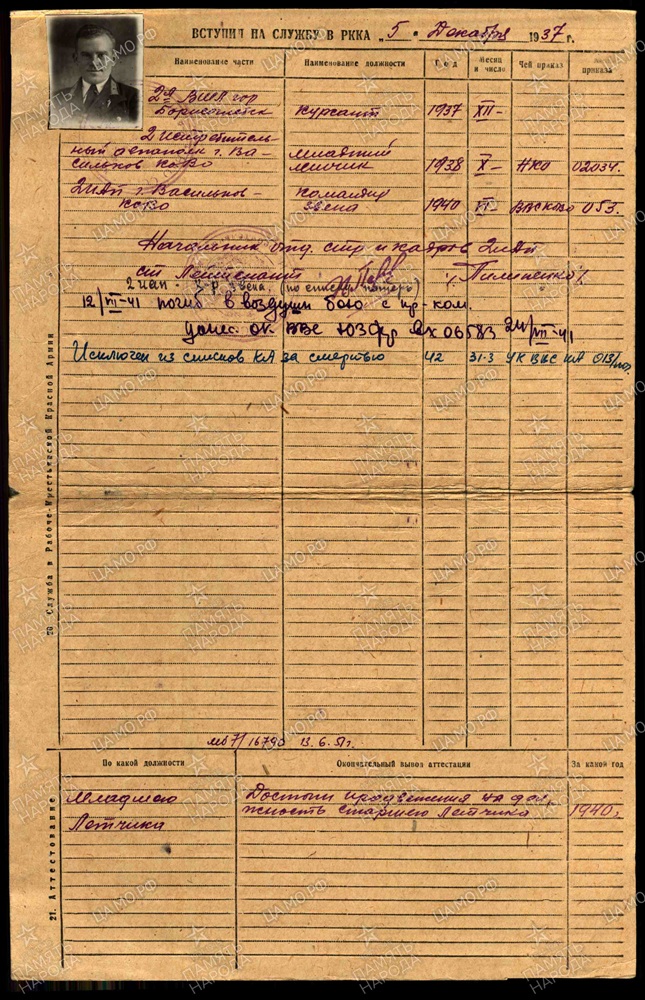 ВСТУПИЛ НА СЛУЖБУ В РККА „5" Декабря 1937 г.
Наименование части Наименование должности Год Месяц и число Чей приказ приказа
2я ВШЛ гор Борисоглебск Курсант 1937 XII-
2 Истребитель-
ный авиаполк г. Ва-
сильков КОВО Младший лётчик 1938 X- НКО 02034.
2ИАП г. Васильков-
КОВО Командир звена 1940 ВВСКОВО 053.
Начальник отд. стр. и кадров 2иАп
ст Лейтенант /Пилипенко/
2 иап - звена (по списку потерь)
12/VII-41 погиб в воздушн бою с пр-ком.
Донес. ОК ВВС ЮЗФр Вх 06583 24/VII-41
Исключен из списков КА за смертью 42 31.3 УК ВВС КА 013/
20. Служба в Рабоче-Крестьянской Красной Армии
16790 13.6.51г.
По какой должности Окончательный вывод аттестации За какой год
Младшего Достоин продвижения на дол-
Летчика жность Старшего летчика 1940г.
21. Аттестование
ПАМЯТЬ НАРОДА
ЦАМО.РФ